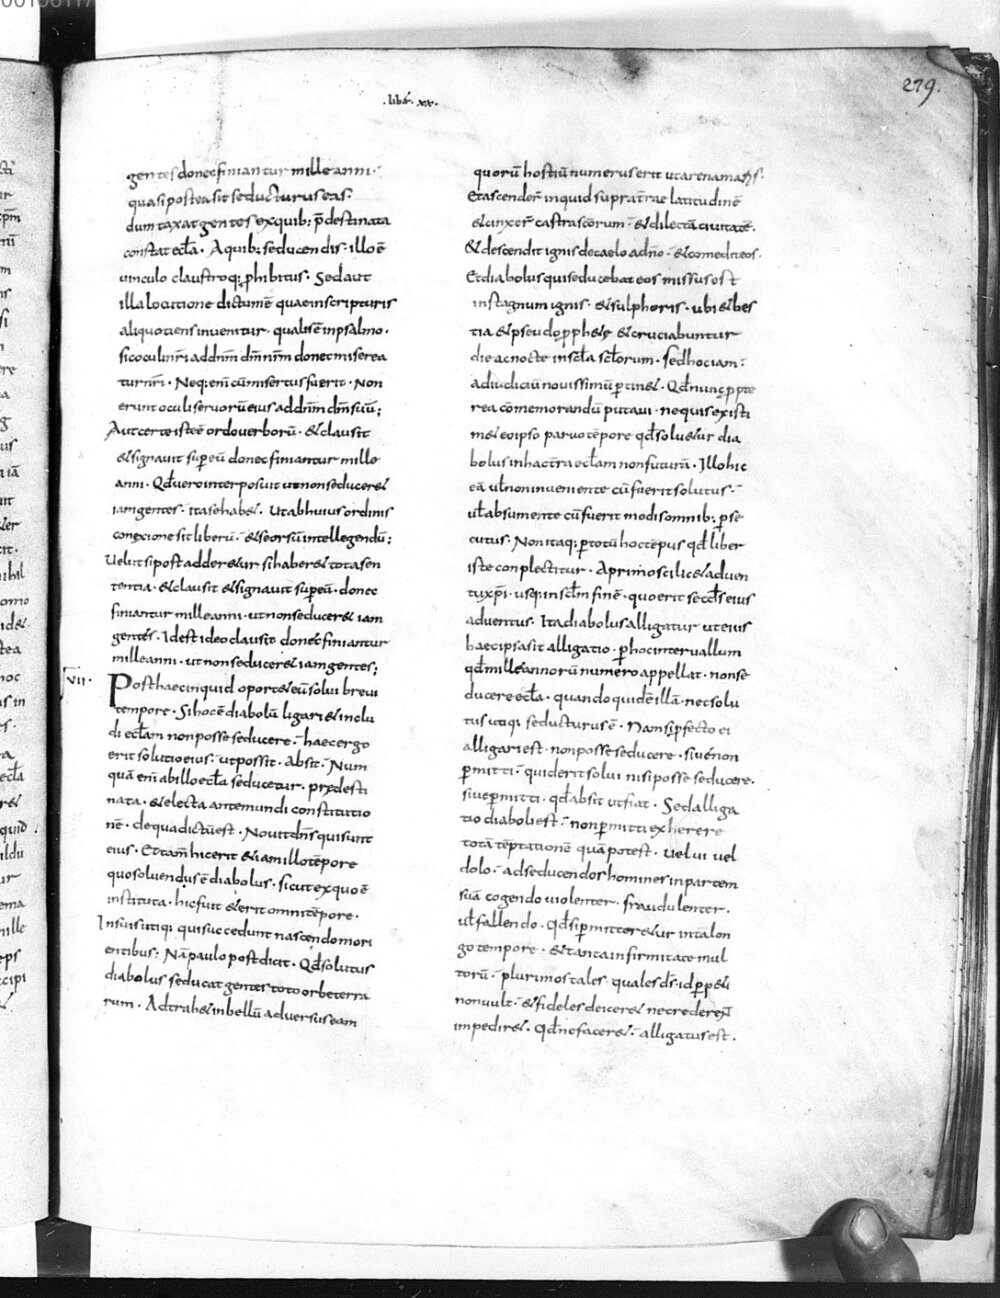 279.
.lib&#772;. xx.
gentes donec finiantur mille anni.
quasi postea sit seducturus eas.
dum taxat gentes exquib; p̄destinata
constat eccl̄a. A quib; seducendis. illo ē
uinculo claustroq; ꝓhibitus. Sed aut
illa locutione dictum ē quae in scripturis
aliquotiens inuenitur. qualis ē in psalmo.
sic oculi nr̄i ad dnm̄ dm̄ nr̄m donec miserea
tur nr̄i. Neq; eni cū misertus fuerit. Non
erunt oculi seruorū eius ad dnm̄ dm̄ suū;
Aut certe iste ē ordo uerborū. & clausit
& signauit super eū donec finiantur mille
anni. Qd̄ uero interposuit ut non seducer&
iam gentes. ita se hab&. ut ab huius ordinis
conexione sit liberū. & seorsū intellegendū;
Uelut si post adder&ur si haber& tota sen
tentia. & clausit & signauit sup eū. donec
finiantur mille anni. ut non seducer& iam
gentes. Id est ideo clausit donec finiantur
mille anni. ut non seducer& iam gentes;
VII.
Post haec inquid oport& eū solui breui
tempore. Si hoc ē diabolū ligari & inclu
di eccl̄am non posse seducere. haec ergo
erit solutio eius. ut possit. Absit. Num
quā eni ab illo eccl̄a seducetur. prędesti
nata. & electa ante mundi constitutio
nē. de qua dictū est. Nouit dn̄s qui sunt
eius. Et tam̄ hic erit & iam illo tēpore
quo soluendus ē diabolus. sicut ex quo ē
instituta. hic fuit & erit omni tēpore.
In suis utiq; qui succedunt nascendo mori
entibus; Nā paulo post dicit. Qd̄ solutus
diabolus seducat gentes toto orbe terra
rum. Ad trah& in bellū aduersus eam
quorū hostiū numerus erit ut arena maris.
Et ascender̄ inquid supra t̄rae latitudinē
& cinxer̄ castra sc̄orum. & dilectā ciuitatē.
& descendit ignis de caelo a dn̄o. & comedit eos.
Et diabolus qui seducebat eos missus est
in stagnum ignis. & sulphoris. ubi & bes
tia & pseudoꝓph&ę & cruciabuntur
die ac nocte in scl̄a scl̄orum. sed hoc iam
ad iudiciū nouissimū p̱tin&. Qd̄ nunc ꝓpte
rea cōmemorandū putaui. ne quis existi
m& eo ipso paruo tēpore qd̄ solu&ur dia
bolus in hac t̄ra eccl̄am non futurā. Illo hic
eā ul̄ non inueniente cū fuerit solutus.
ul̄ absumente cū fuerit modis omnib; p̱se
cutus. Non itaq; p̱ totū hoc tēpus qd̄ liber
iste conplectitur. A primo scilic& aduen
tu xp̄i. usq; in scl̄m finē. quo erit secd̄s eius
aduentus. Ita diabolus alligatur ut eius
haec ipsa sit alligatio. p̱ hoc interuallum
qd̄ mille annorū numero appellat. non se
ducere eccl̄a. quando quidē illā. nec solu
tus utiq; seducturus ē. Nam si p̱fecto ei
alligari est. non posse seducere. siue non
p̱mitti. quid erit solui nisi posse seducere.
siue p̱mitti. qd̄ absit ut fiat. Sed alliga
tio diaboli est. non p̱mitti exherere
totā tēptationē quā potest. uel ui uel
dolo. ad seducendos homines in partem
suā cogendo uiolenter. fraudulenter.
ul̄ fallendo. Qd̄ si p̱mitter&ur in tā lon
go tempore. & tanta infirmitate mul
torū. plurimos tales. quales ds̄ id p̱p&i
non uult. & fideles deicer& ne crederent
impedir&. Qd̄ ne facer&. alligatus est.